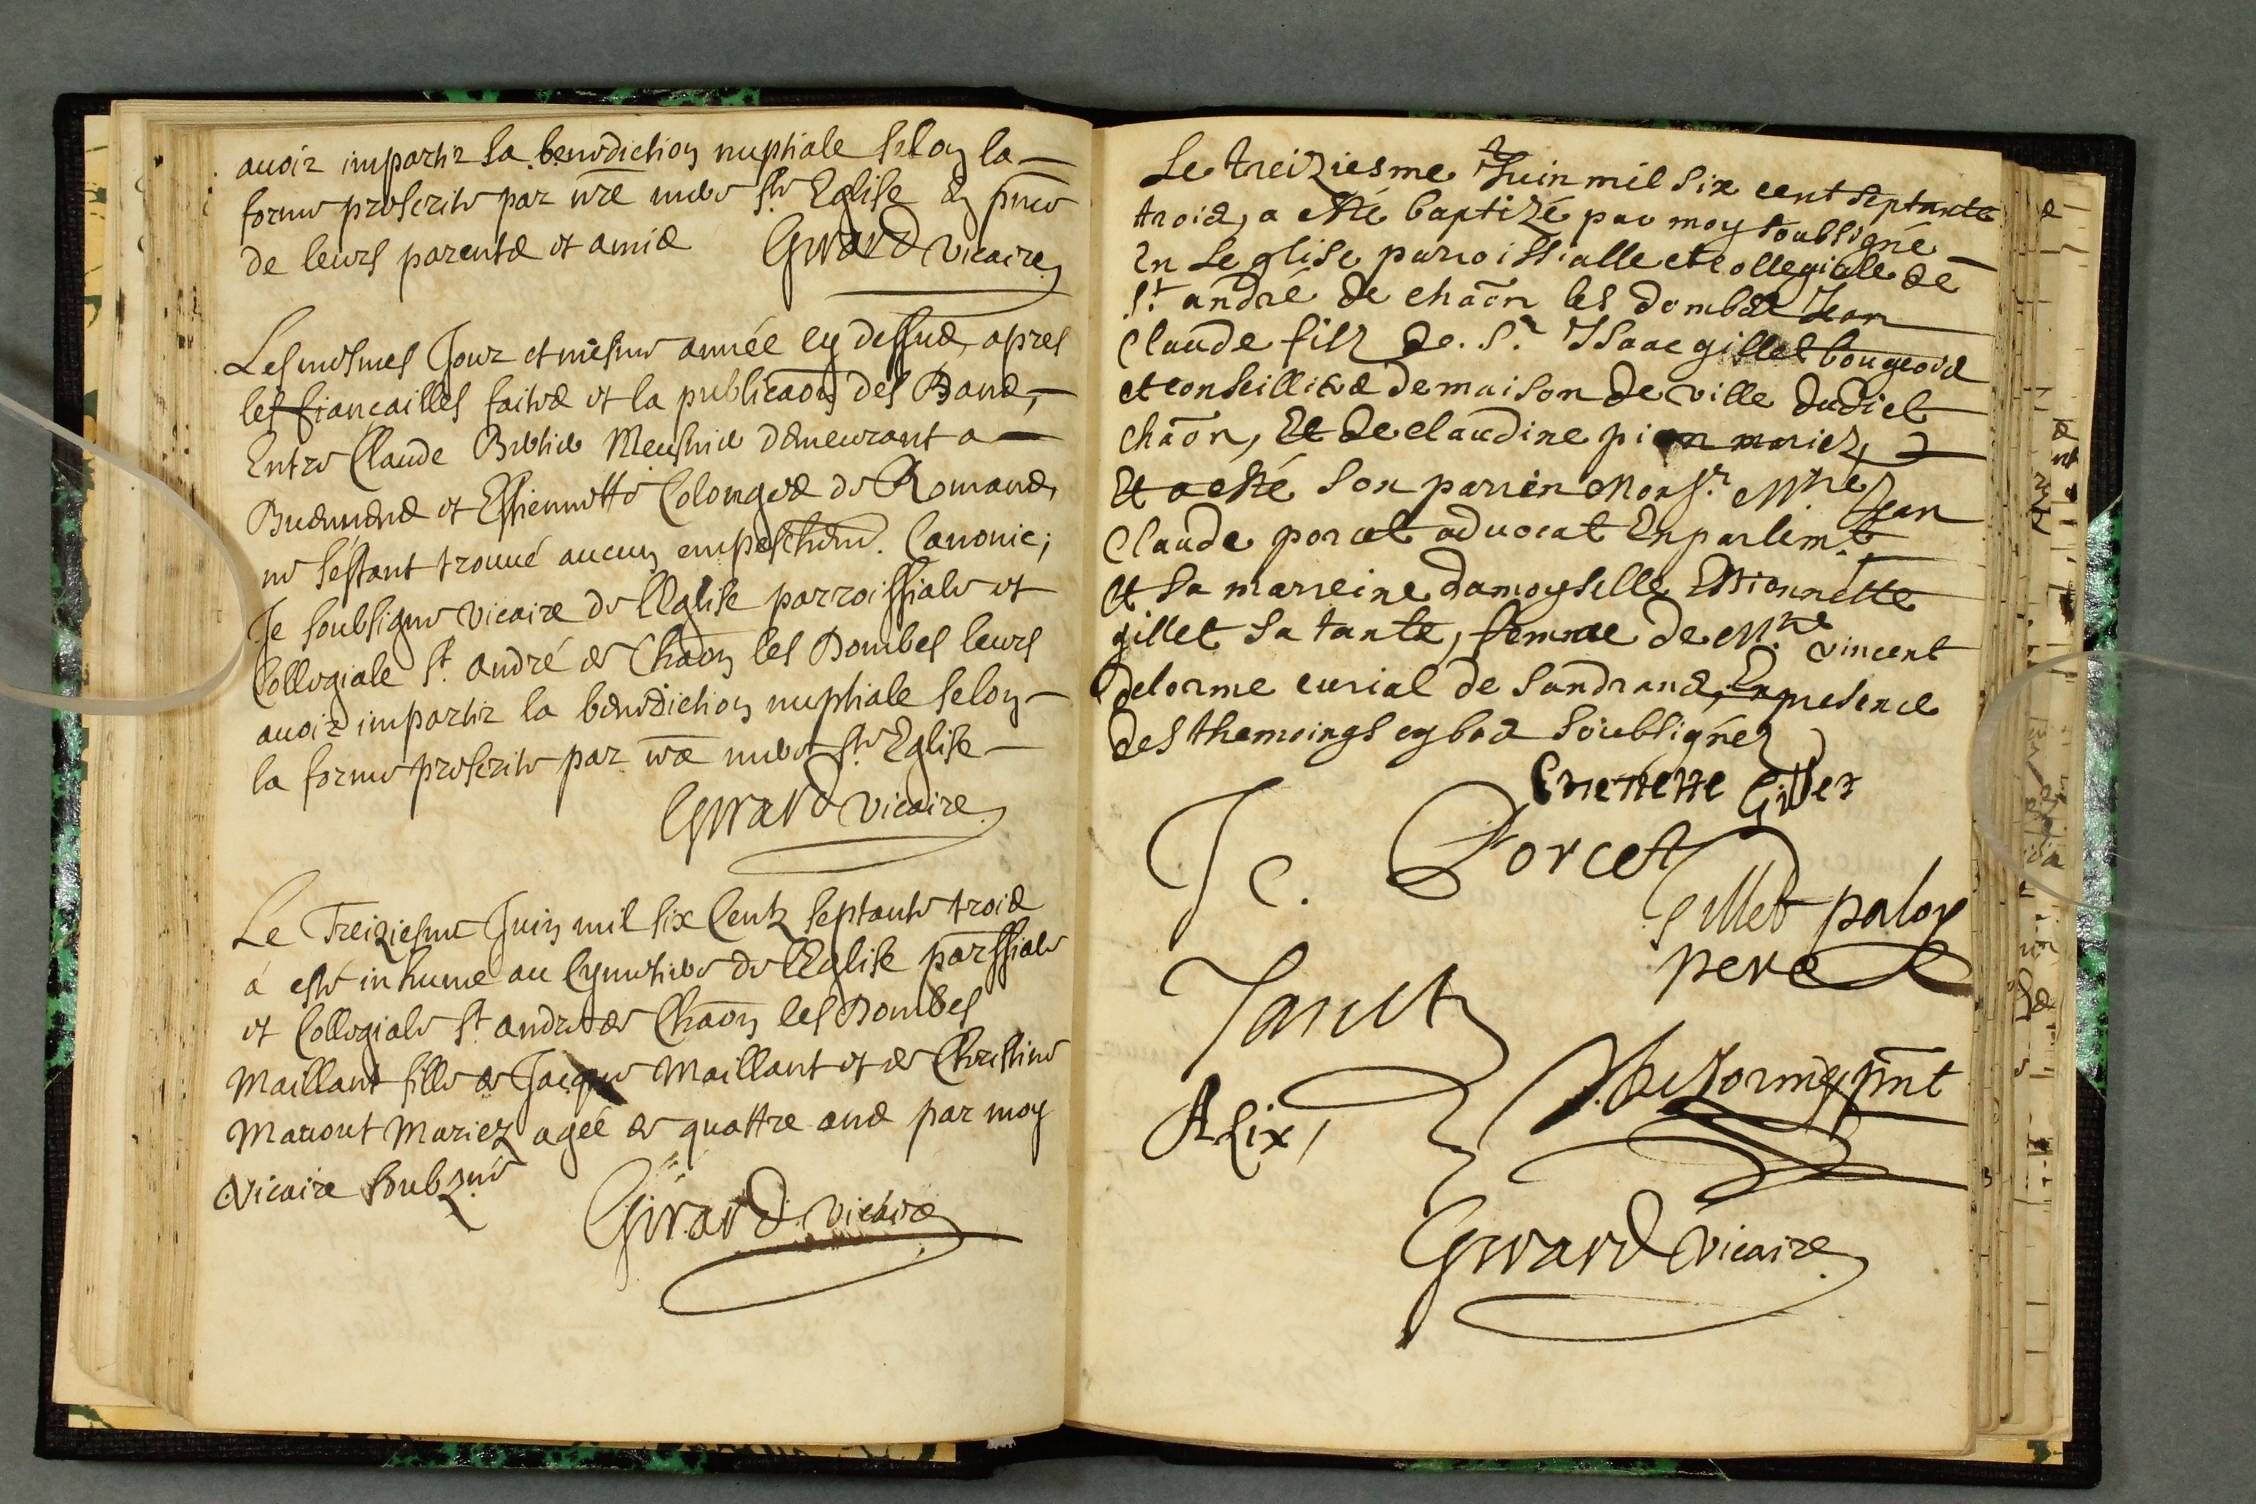 avoir impartir la benediction nuptiale selon la
forme prescrite par nre mere ste Eglise En pnce
de leurs parents et amis Girard vicaire
Les mesmes Jour et mesme année cy dessus, apres
les fiançailles faites et la publicaon des Bans,
Entre Claude Meusnier demeurant a
et Estiennette Colonges de Romans,
ne sestant trouvé aucun empeschem. Canonic;
Je soubsigne vicaire de l'Eglise parroissiale et
Collegiale St. andré de Chaon les Dombes leurs
avoir impartir la benediction nuptiale selon
la forme prescrite par nre mere ste Eglise
Girard vicaire
Le Treiziesme Juin mil six Centz septante trois
a esté inhume au Cymetiere de l'Eglise parssiale
et Collegiale St andre de Chaon les Dombes
Maillant fille de Jacque Maillant et de Christine
Mariez agée de quattre ans par moy
Vicaire soubzné
Girard vicaire
Le treiziesme Juin mil six cent septante
trois, a esté baptizé par moy soubsigné
En Leglise parroissialle et collegialle de
St. andré de chaon les dombes Jean
Claude filz de. Sr. Isaac gillet bourgeois
et conseillier de maison de ville dudict
chaon, Et de claudine pion mariez,
Et a esté son parrin Monsr. Mtre Jean
Claude porcet advocat En parlemt.
et sa marreine damoyselle Estiennette
gillet sa tante, femme de Mtre vincent
delorme curial de Sandrans, En presence
des themoings cy bas soubsignéz
Ennemette Gillet
J c. Porcet
Gillet
pere
Janin
Alix,
Delorme pnt
Girard vicaire